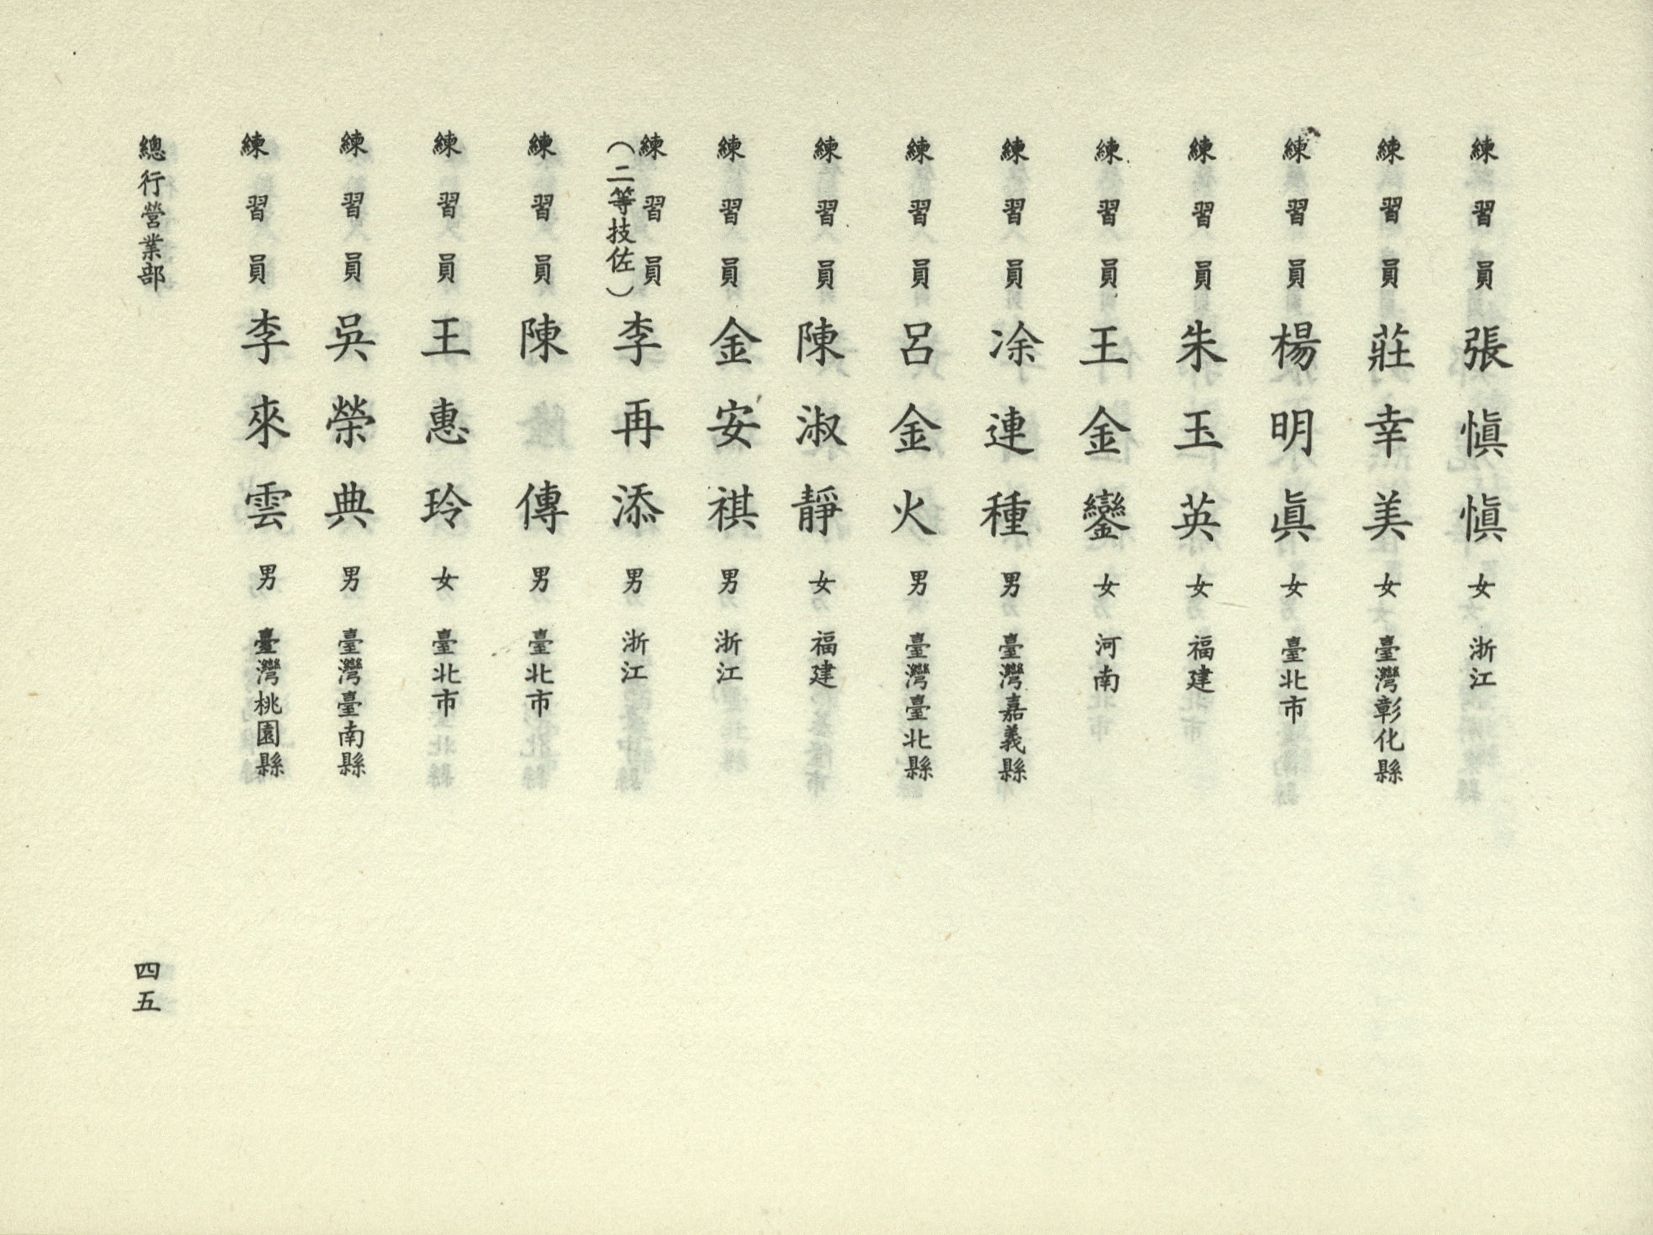 練習員 張愼愼 女 浙江
練習員 莊幸美 女 臺灣彰化縣
練習員 楊明眞 女 臺北市
練習員 朱玉英 女 福建
練習員 王金鑾 女 河南
練習員 凃連種 男 臺灣嘉義縣
練習員 呂金火 男 臺灣臺北縣
練習員 陳淑靜 女 福建
練習員 金安祺 男 浙江
練習員 李再添 男 浙江
（二等技佐）
練習員 陳傳 男 臺北市
練習員 王惠玲 女 臺北市
練習員 吳榮典 男 臺灣臺南縣
練習員 李來雲 男 臺灣桃園縣
總行營業部
四五